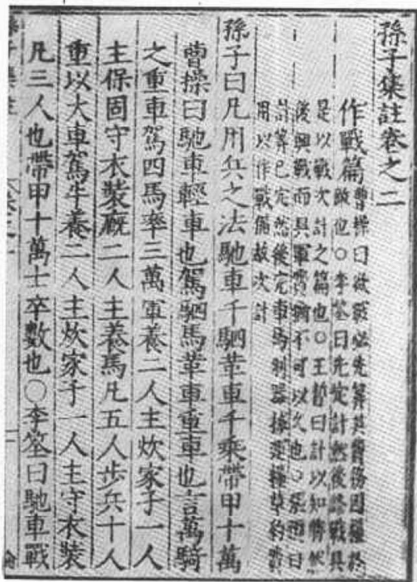 孫子集註卷之二
作戰篇曹操曰欲戰必先筭其費務因糧於
敵也○李筌曰先定計然後修戰具
是以戰次計之篇也○王晳曰計以知勝然
後興戰而具軍費猶不可以久也○張預曰
計筭已定然後完車馬利器械運糧草約費
用以作戰備故次計
孫子曰凡用兵之法馳車千駟革車千乘帶甲十萬
曹操曰馳車輕車也駕駟馬革車重車也言萬騎
之重車駕四馬率三萬軍養二人主炊家子一人
主保固守衣裝廐二人主養馬凡五人步兵十人
重以大車駕牛養二人主炊家子一人主守衣裝
凡三人也帶甲十萬士卒數也○李筌曰馳車戰